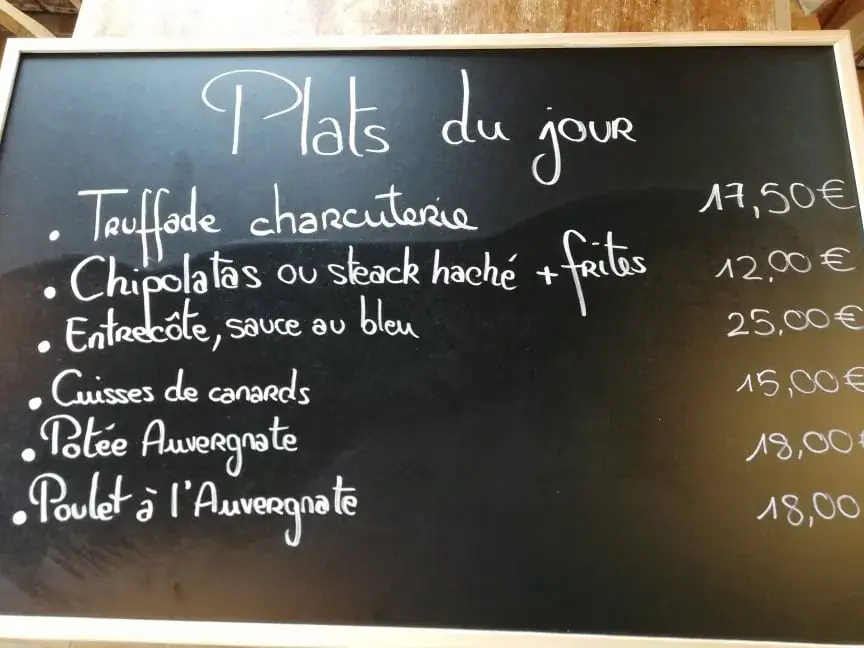 Plats du jour
• Truffade charcuterie 17,50€
• Chipolatas ou steack haché + frites 12,00€
• Entrecôte, sauce au bleu 25,00€
• Cuisses de canards 15,00€
• Potée Auvergnate 18,00€
• Poulet à l'Auvergnate 18,00